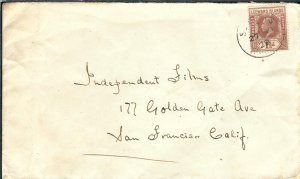 LEEWARD ISLANDS
Independent Films
177 Golden Gate Ave
San Francisco Calif.